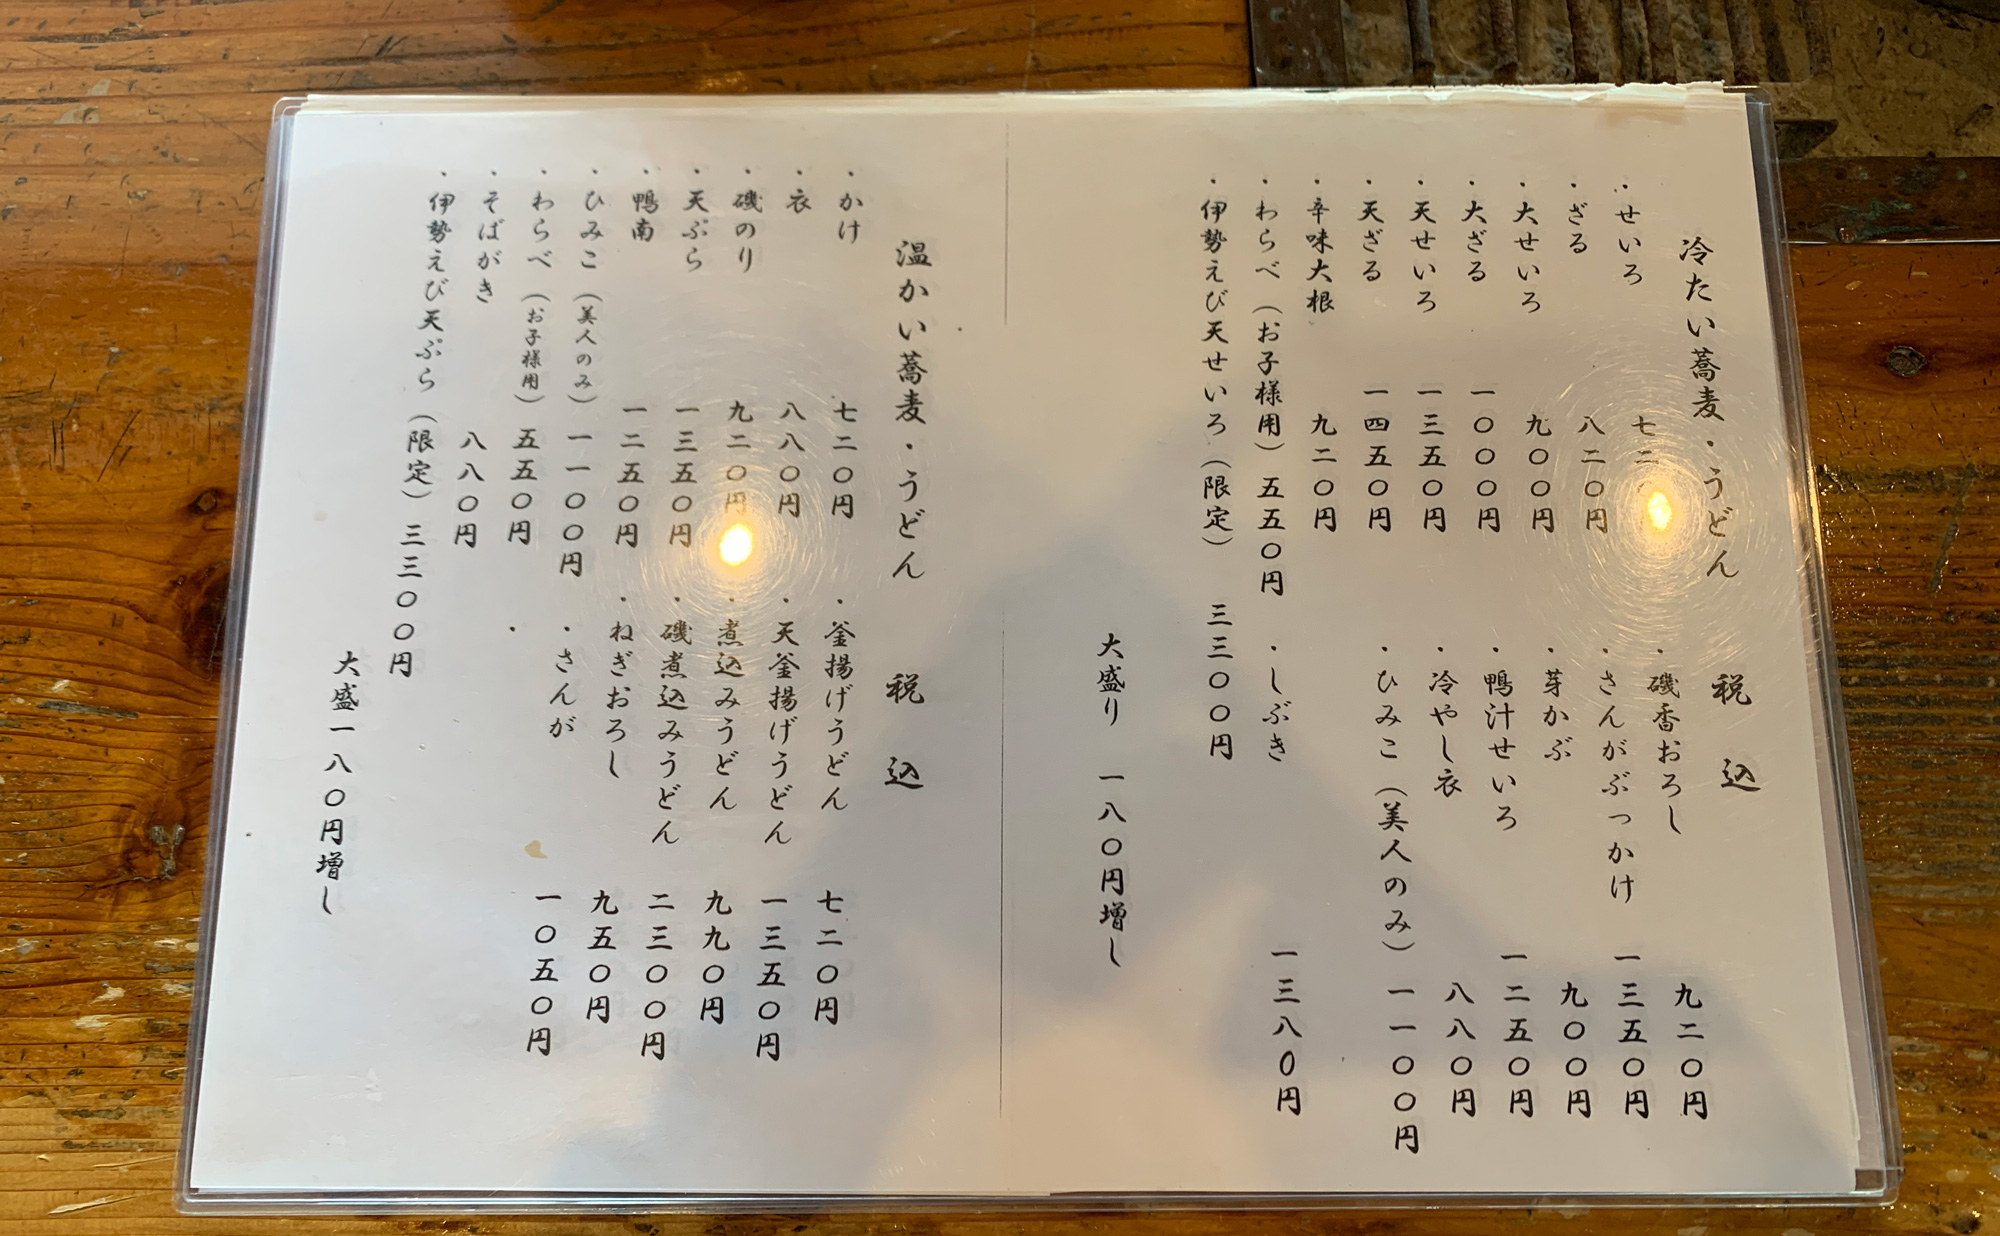 冷たい蕎麦・うどん　税込
・せいろ　七二
・ざる　八二〇円
・大せいろ　九〇〇円
・大ざる　一〇〇〇円
・天せいろ　一三五〇円
・天ざる　一四五〇円
・辛味大根　九二〇円
・わらべ（お子様用）五五〇円
・伊勢えび天せいろ（限定）　三三〇〇円
・磯香おろし　九二〇円
・さんがぶっかけ　一三五〇円
・芽かぶ　九〇〇円
・鴨汁せいろ　一二五〇円
・冷やし衣　八八〇円
・ひみこ（美人のみ）一一〇〇円
・しぶき　一三八〇円
大盛り　一八〇円増し
温かい蕎麦・うどん　税込
・かけ　七二〇円
・衣　八八〇円
・磯のり　九二〇円
・天ぷら　一三五〇円
・鴨南　一二五〇円
・ひみこ（美人のみ）一一〇〇円
・わらべ（お子様用）五五〇円
・そばがき　八八〇円
・伊勢えび天ぷら（限定）三三〇〇円
・釜揚げうどん　七二〇円
・天釜揚げうどん　一三五〇円
・煮込みうどん　九九〇円
・磯煮込みうどん　二三〇〇円
・ねぎおろし　九五〇円
・さんが　一〇五〇円
・
大盛一八〇円増し